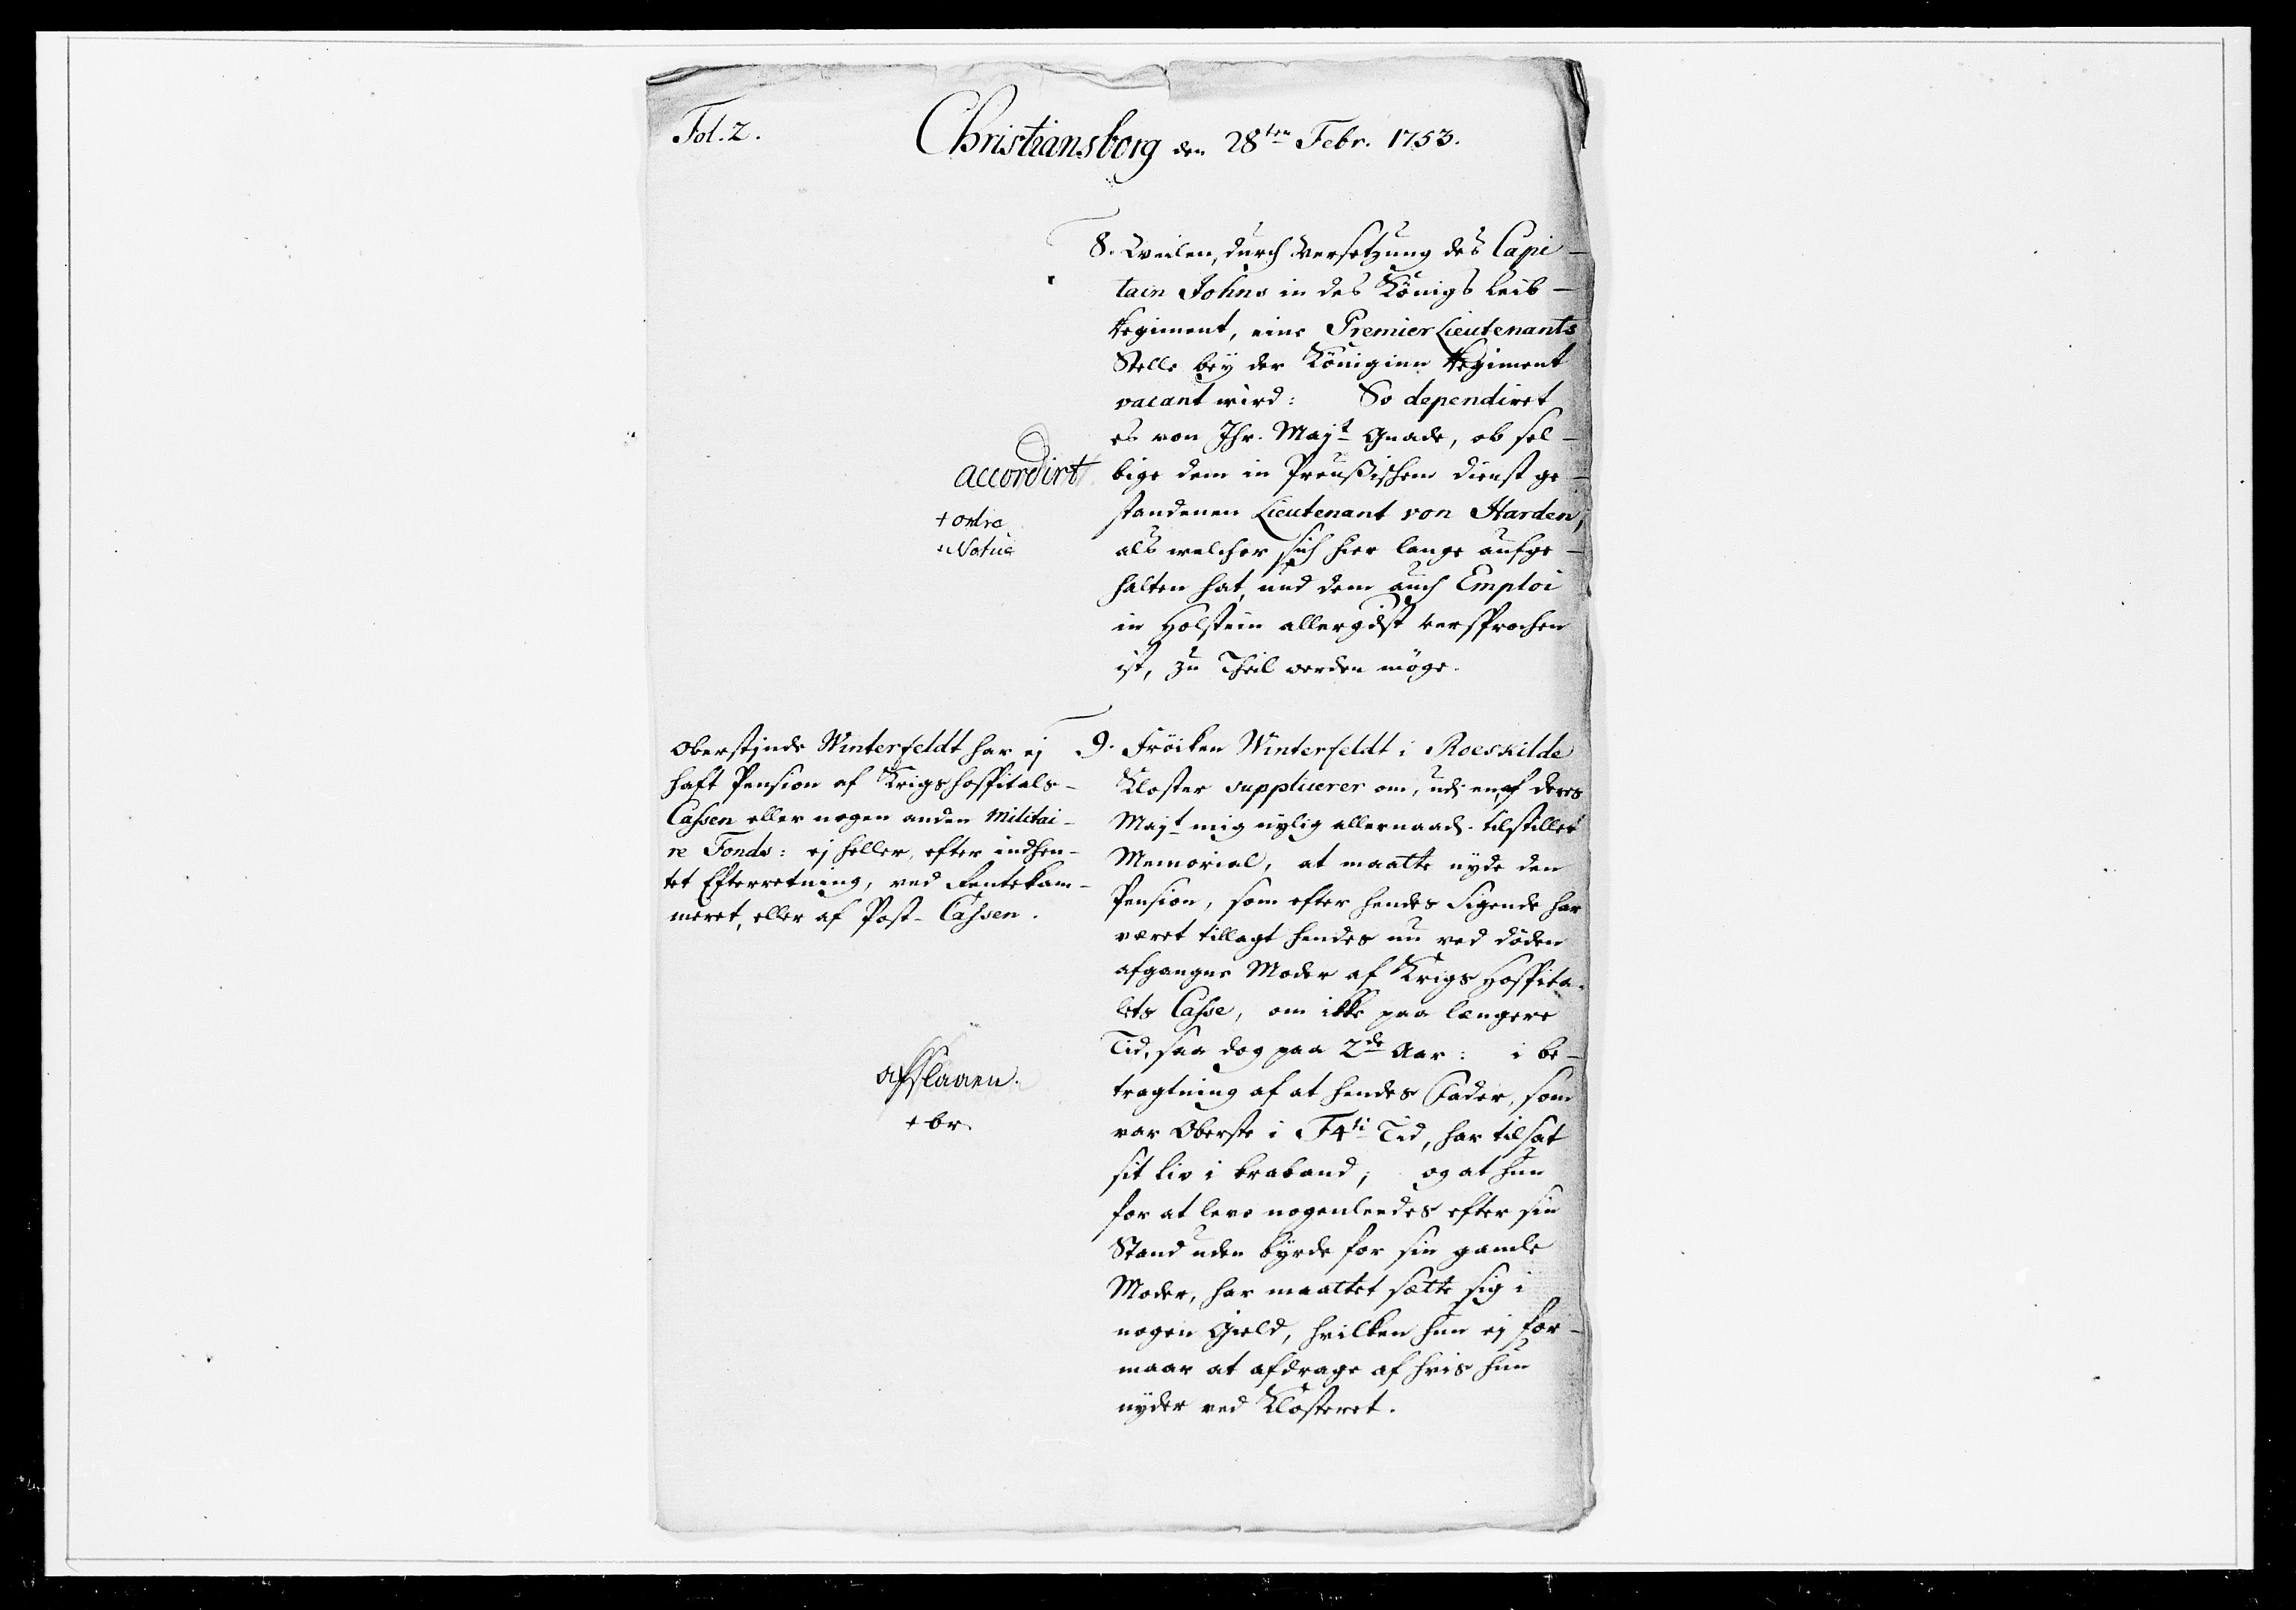 Fol. 2.
Christiansborg den 28ten Febr. 1753.
8. Weilen, durch Versetzung des Capi-
tain Johns in des Königs Leib-
Regiment, eine Premier Lieutenants
Stelle beÿ der Königinn Regiment
vacant wird: So dependiret
es von Ihr. Majt Gnade, ob sel-
bige dem in Preußischem Dienst ge-
standenen Lieutenant von Harden,
als welcher sich hier lange aufge-
halten hat, und dem auch Emploi
in Holstein allergdst versprochen
ist, zu Theil werden möge.
accordirt
+ ordre
+ Notice
9. Fröiken Winterfeldt i Roeskilde
Kloster supplicerer om, udi en, af Deres
Majt mig nylig allernaadt. tilstillet
Memorial, at maatte nyde den
Pension, som efter hendes Sigende har
været tillagt hendes nu ved døden
afgangne Moder af Krigs Hospita-
lets Casse, om ikke paa længere
Tid, saa dog paa 2de Aar: i be-
tragtning af at hendes Fader, som
var Oberste i F4ti Tid, har tilsat
sit Liv i Braband; og at hun
for at leve nogenleedes efter sin
Stand uden byrde for sin gamle
Moder, har maattet sætte sig i
nogen Gield, hvilken hun ej for-
maar at afdrage af hvis hun
nyder ved Klosteret.
Oberstinde Winterfeldt har ej
haft Pension af Krigshospitals-
Cassen eller nogen anden Militai-
re Fonds: ej heller, efter indhen-
tet Efterretning, ved Rentekam-
meret, eller af Post-Cassen.
afslaaen.
+ br.